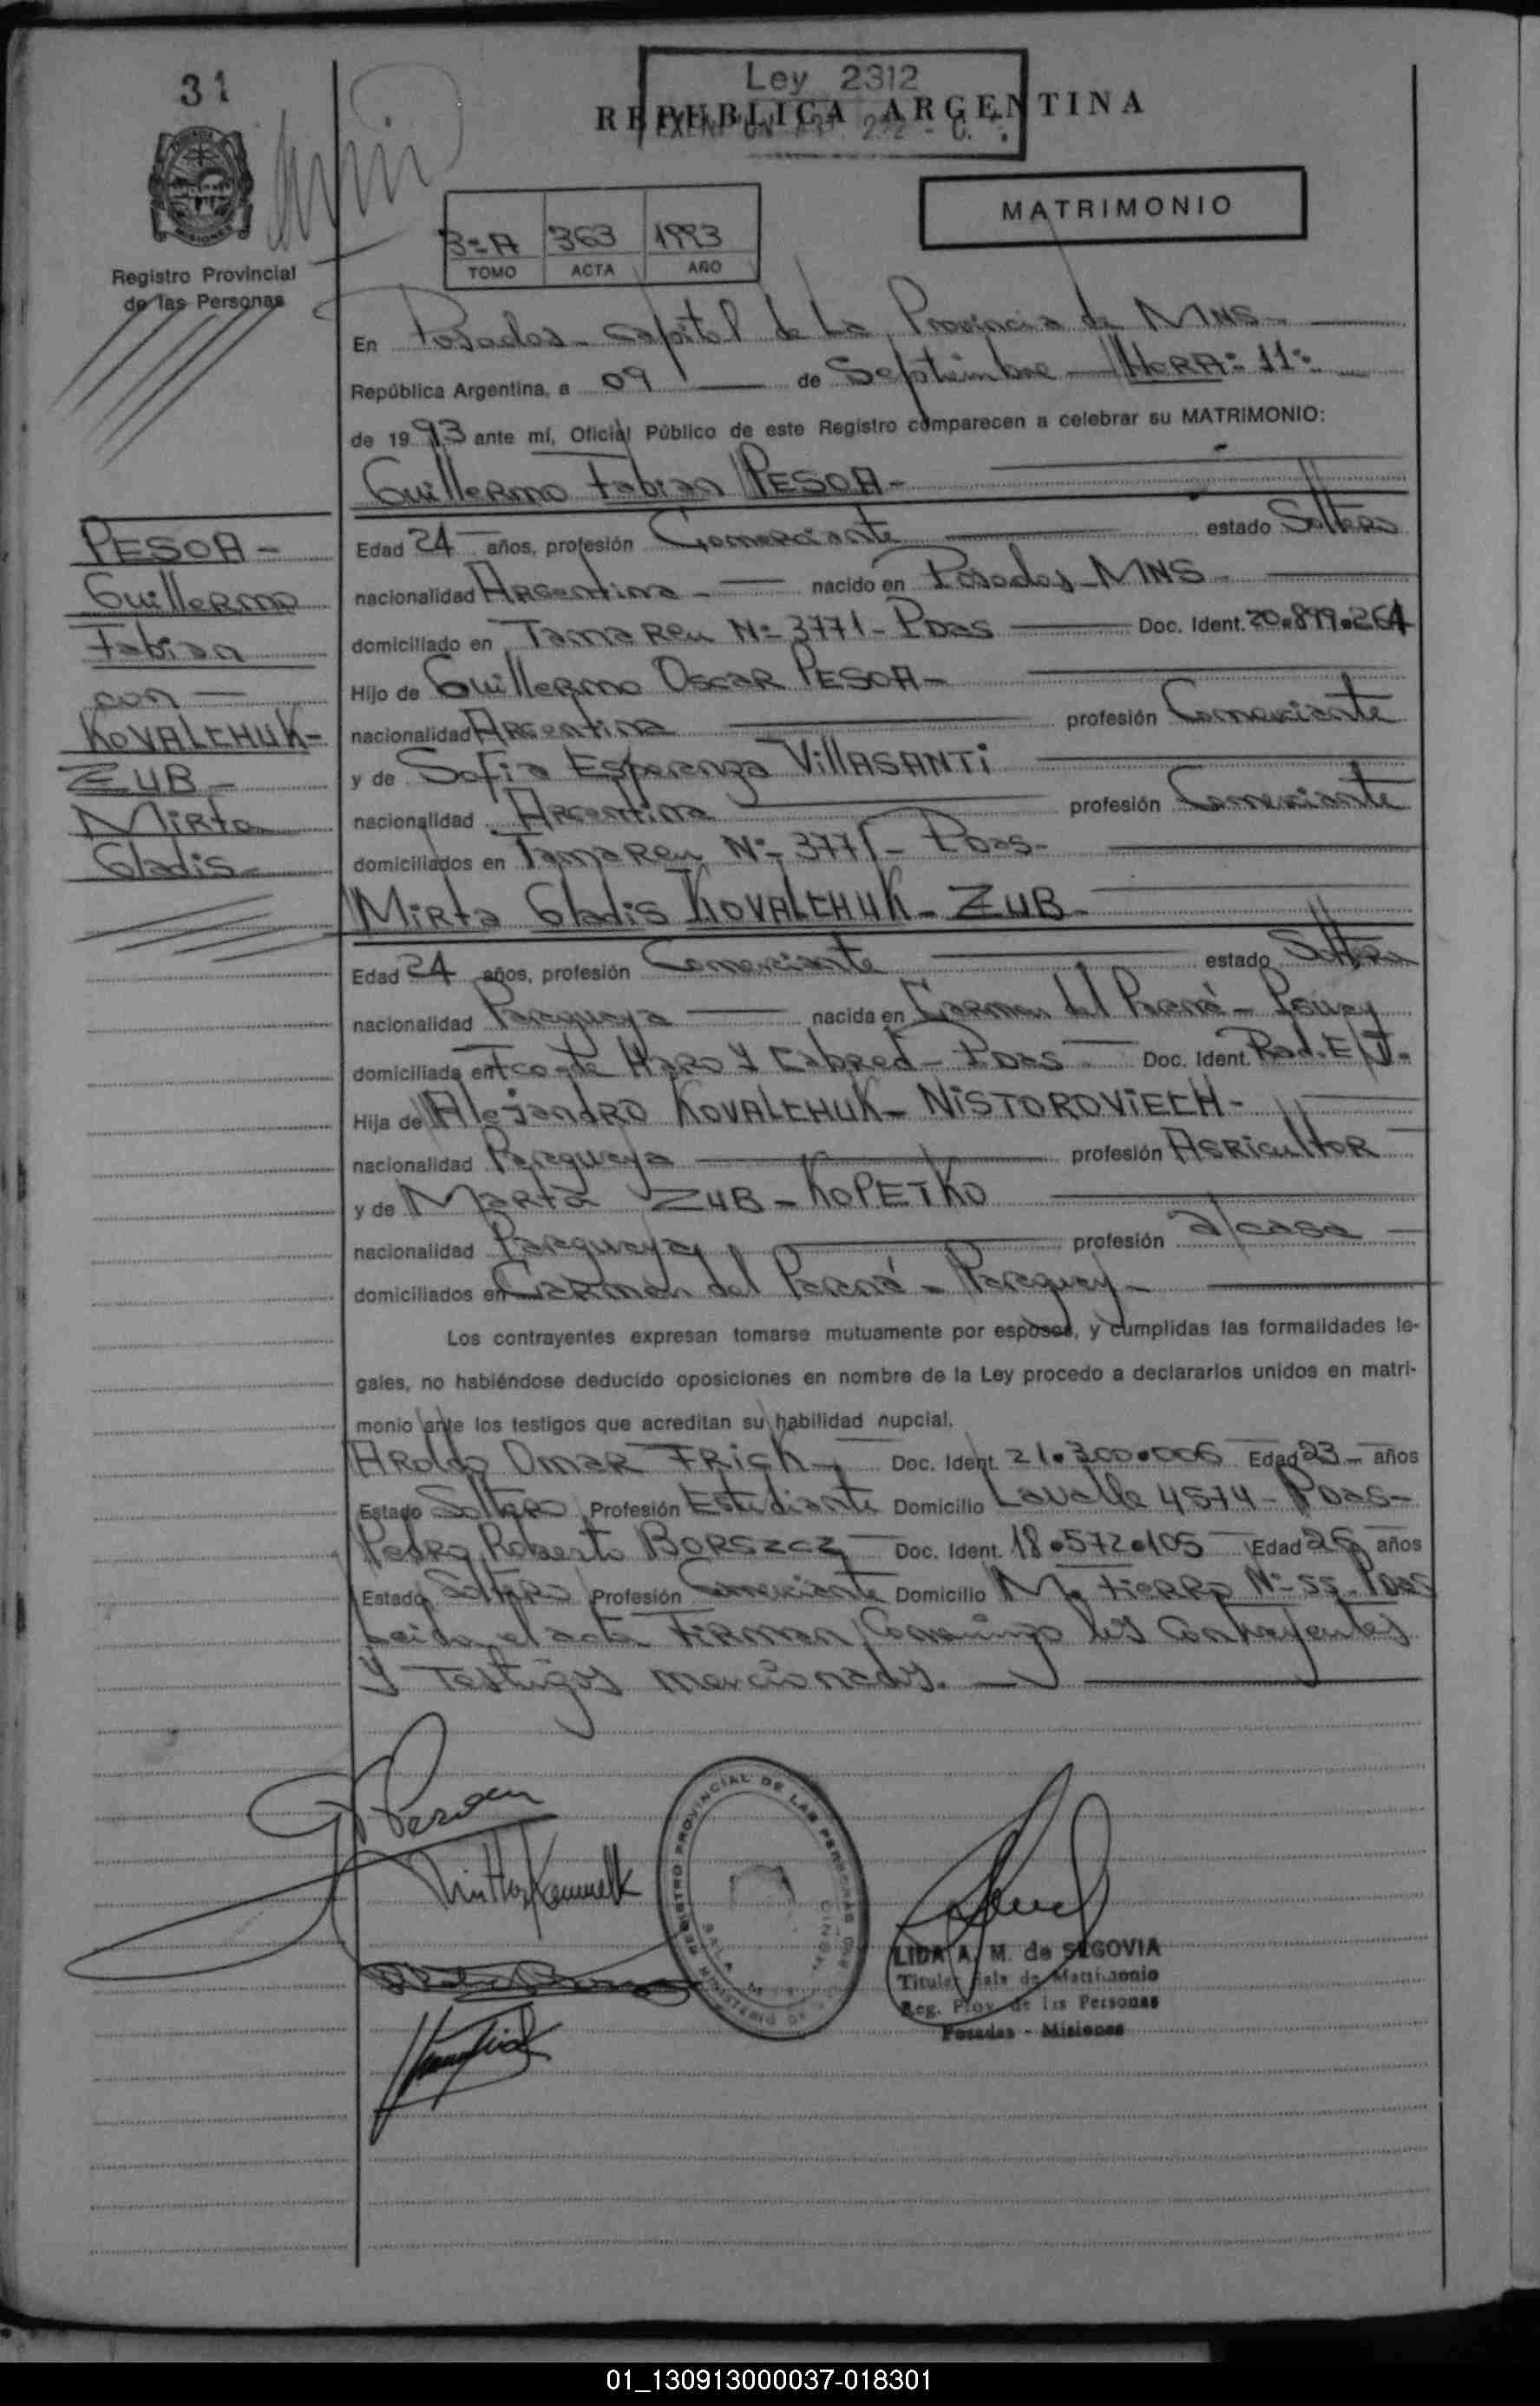 31
Ley 2312
REPUBLICA ARGENTINA
MATRIMONIO
3=A 363 1993
TOMO ACTA AÑO
Registro Provincial
de las Personas
En Posadas - capital de La Provincia de MNS -
República Argentina, a 09 de Septiembre - HORA: 11:
de 1993 ante mí, Oficial Público de este Registro comparecen a celebrar su MATRIMONIO:
Guillermo Fabian PESOA -
PESOA -
Guillermo
Fabian
con -
KOVALCHUK -
ZUB -
Mirta
Gladis -
Edad 24 años, profesión Comerciante estado Soltero
nacionalidad Argentina - nacido en Posadas - MNS -
domiciliado en Tamareu N= 3771 - Pdas Doc. Ident. 20.899.264
Hijo de Guillermo Oscar PESOA -
nacionalidad Argentina profesión Comerciante
y de Sofia Esperanza VillASANTi
nacionalidad Argentina profesión Comerciante
domiciliados en Tamareu N= 3771 - Pdas -
Mirta Gladis KOVALCHUK - ZUB -
Edad 24 años, profesión Comerciante estado Soltera
nacionalidad Paraguaya nacida en Carmen del Paraná -
domiciliada en Fco. de Haro y Cabred - Pdas - Doc. Ident. Rad. E/T.
Hija de Alejandro KOVALCHUK - NISTOROVIECH -
nacionalidad Paraguaya profesión Agricultor
y de Marta ZUB - KOPETKO
nacionalidad Paraguaya profesión a/casa
domiciliados en Carmen del Paraná - Paraguay -
Los contrayentes expresan tomarse mutuamente por esposos, y cumplidas las formalidades le-
gales, no habiéndose deducido oposiciones en nombre de la Ley procedo a declararlos unidos en matri-
monio ante los testigos que acreditan su habilidad nupcial.
Aroldo Omar FRICH - Doc. Ident. 21.300.006 Edad 23 - años
Estado Soltero Profesión Estudiante Domicilio Lavalle 4574 - Pdas -
Pedro Roberto BORSZCZ Doc. Ident. 18.572.105 Edad 26 años
Estado Soltero Profesión Comerciante Domicilio M. Fierro N= 55 - Pdas
Leida el acta Firman Conmigo los Contrayentes
y Testigos mencionados. -
REGISTRO PROVINCIAL DE LAS PERSONAS
MINISTERIO DE
LIDA A. M. de SEGOVIA
Titular Sala de Matrimonio
Reg. Prov. de las Personas
Posadas - Misiones
01_130913000037-018301